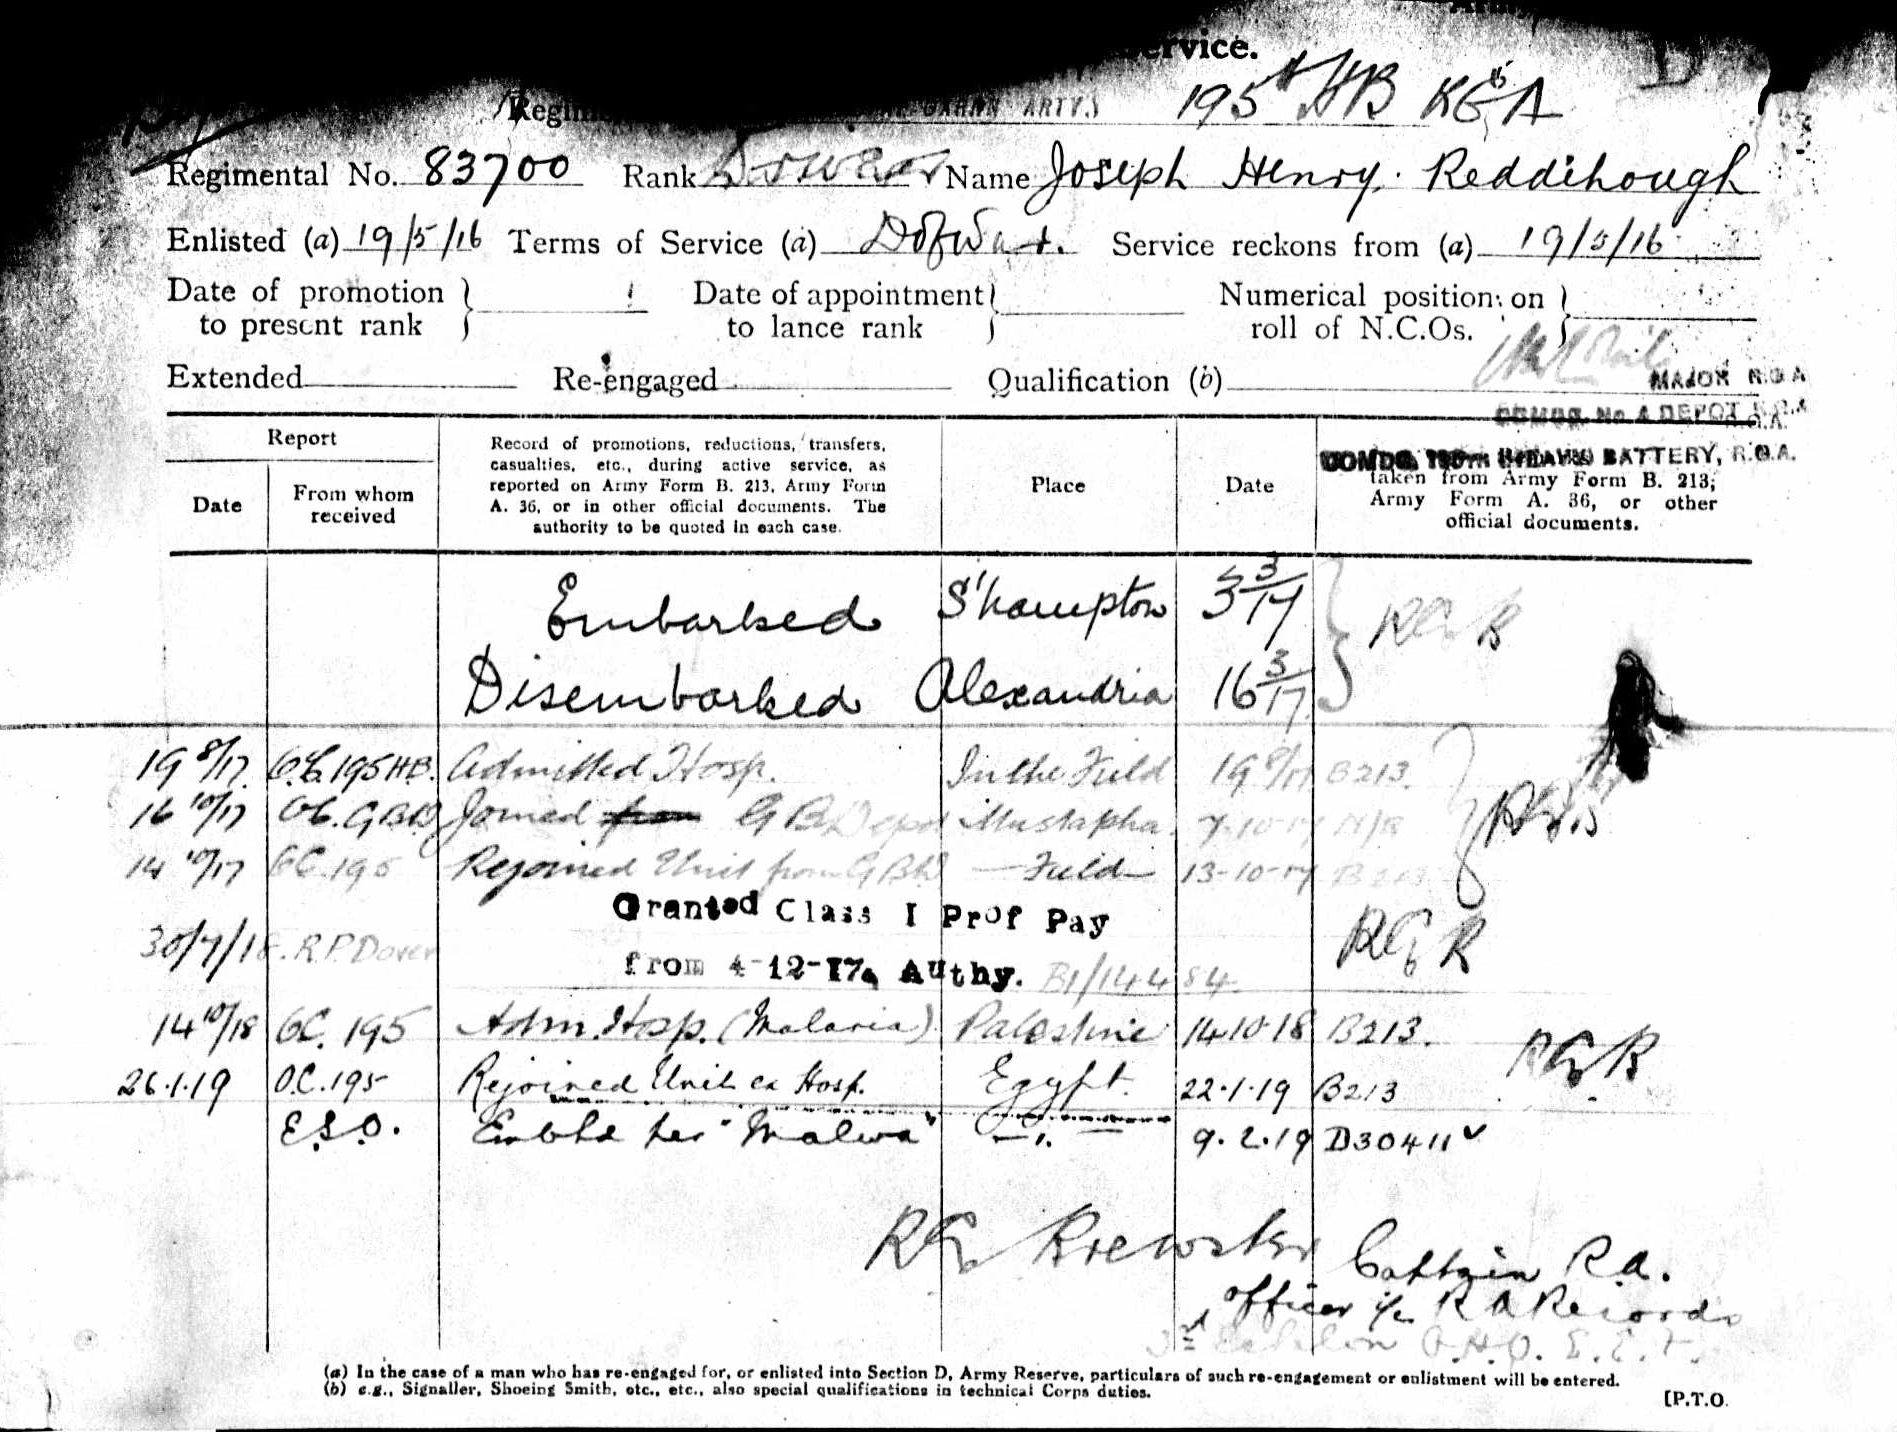 ervice.
195 HB
Regim ARTY.)
Regimental No. 83700 Rank Name Joseph Henry Reddihough
Enlisted (a) 19/5/16 Terms of Service (a) DofWar. Service reckons from (a) 19/5/16
Date of promotion to present rank } Date of appointment to lance rank } Numerical position on roll of N.C.Os. }
Extended Re-engaged Qualification (b)
MAJOR R.G.A
COMDG. No 4 DEPOT R.G.A
R.G.A.
COMDG. 195TH HEAVY BATTERY, R.G.A.
Report
Date
From whom received
Record of promotions, reductions, transfers,
casualties, etc., during active service, as
reported on Army Form B. 213, Army Form
A. 36, or in other official documents. The
authority to be quoted in each case.
Place
Date
taken from Army Form B. 213,
Army Form A. 36, or other
official documents.
Embarked S'hampton 3 3/17
Disembarked Alexandria 16 3/17
RGB
19 8/17 O.C. 195 H.B. Admitted Hosp. In the Field 19 8/17 B213.
16 10/17 OC. GBD Joined from G B Depot Mustapha 7-10-17
14 10/17 OC. 195 Rejoined Unit from GBD Field 13-10-17 B213
Granted Class I Prof Pay
30/7/18. R.P. Dover from 4-12-17. Authy. B1/14484.
RGB
14 10/18 OC. 195 Adm. Hosp. (Malaria) Palestine 14.10.18 B213.
RGB
26.1.19 O.C. 195 Rejoined Unit ex Hosp. Egypt 22.1.19 B213
E.S.O. Embkd per "Malwa" — ". — 9.2.19 D30411 ✓
RG Brewster Captain R.A.
Officer i/c R A Records
3rd Echelon G.H.Q. E.E.F.
(a) In the case of a man who has re-engaged for, or enlisted into Section D, Army Reserve, particulars of such re-engagement or enlistment will be entered.
(b) e.g., Signaller, Shoeing Smith, etc., etc., also special qualifications in technical Corps duties.
[P.T.O.